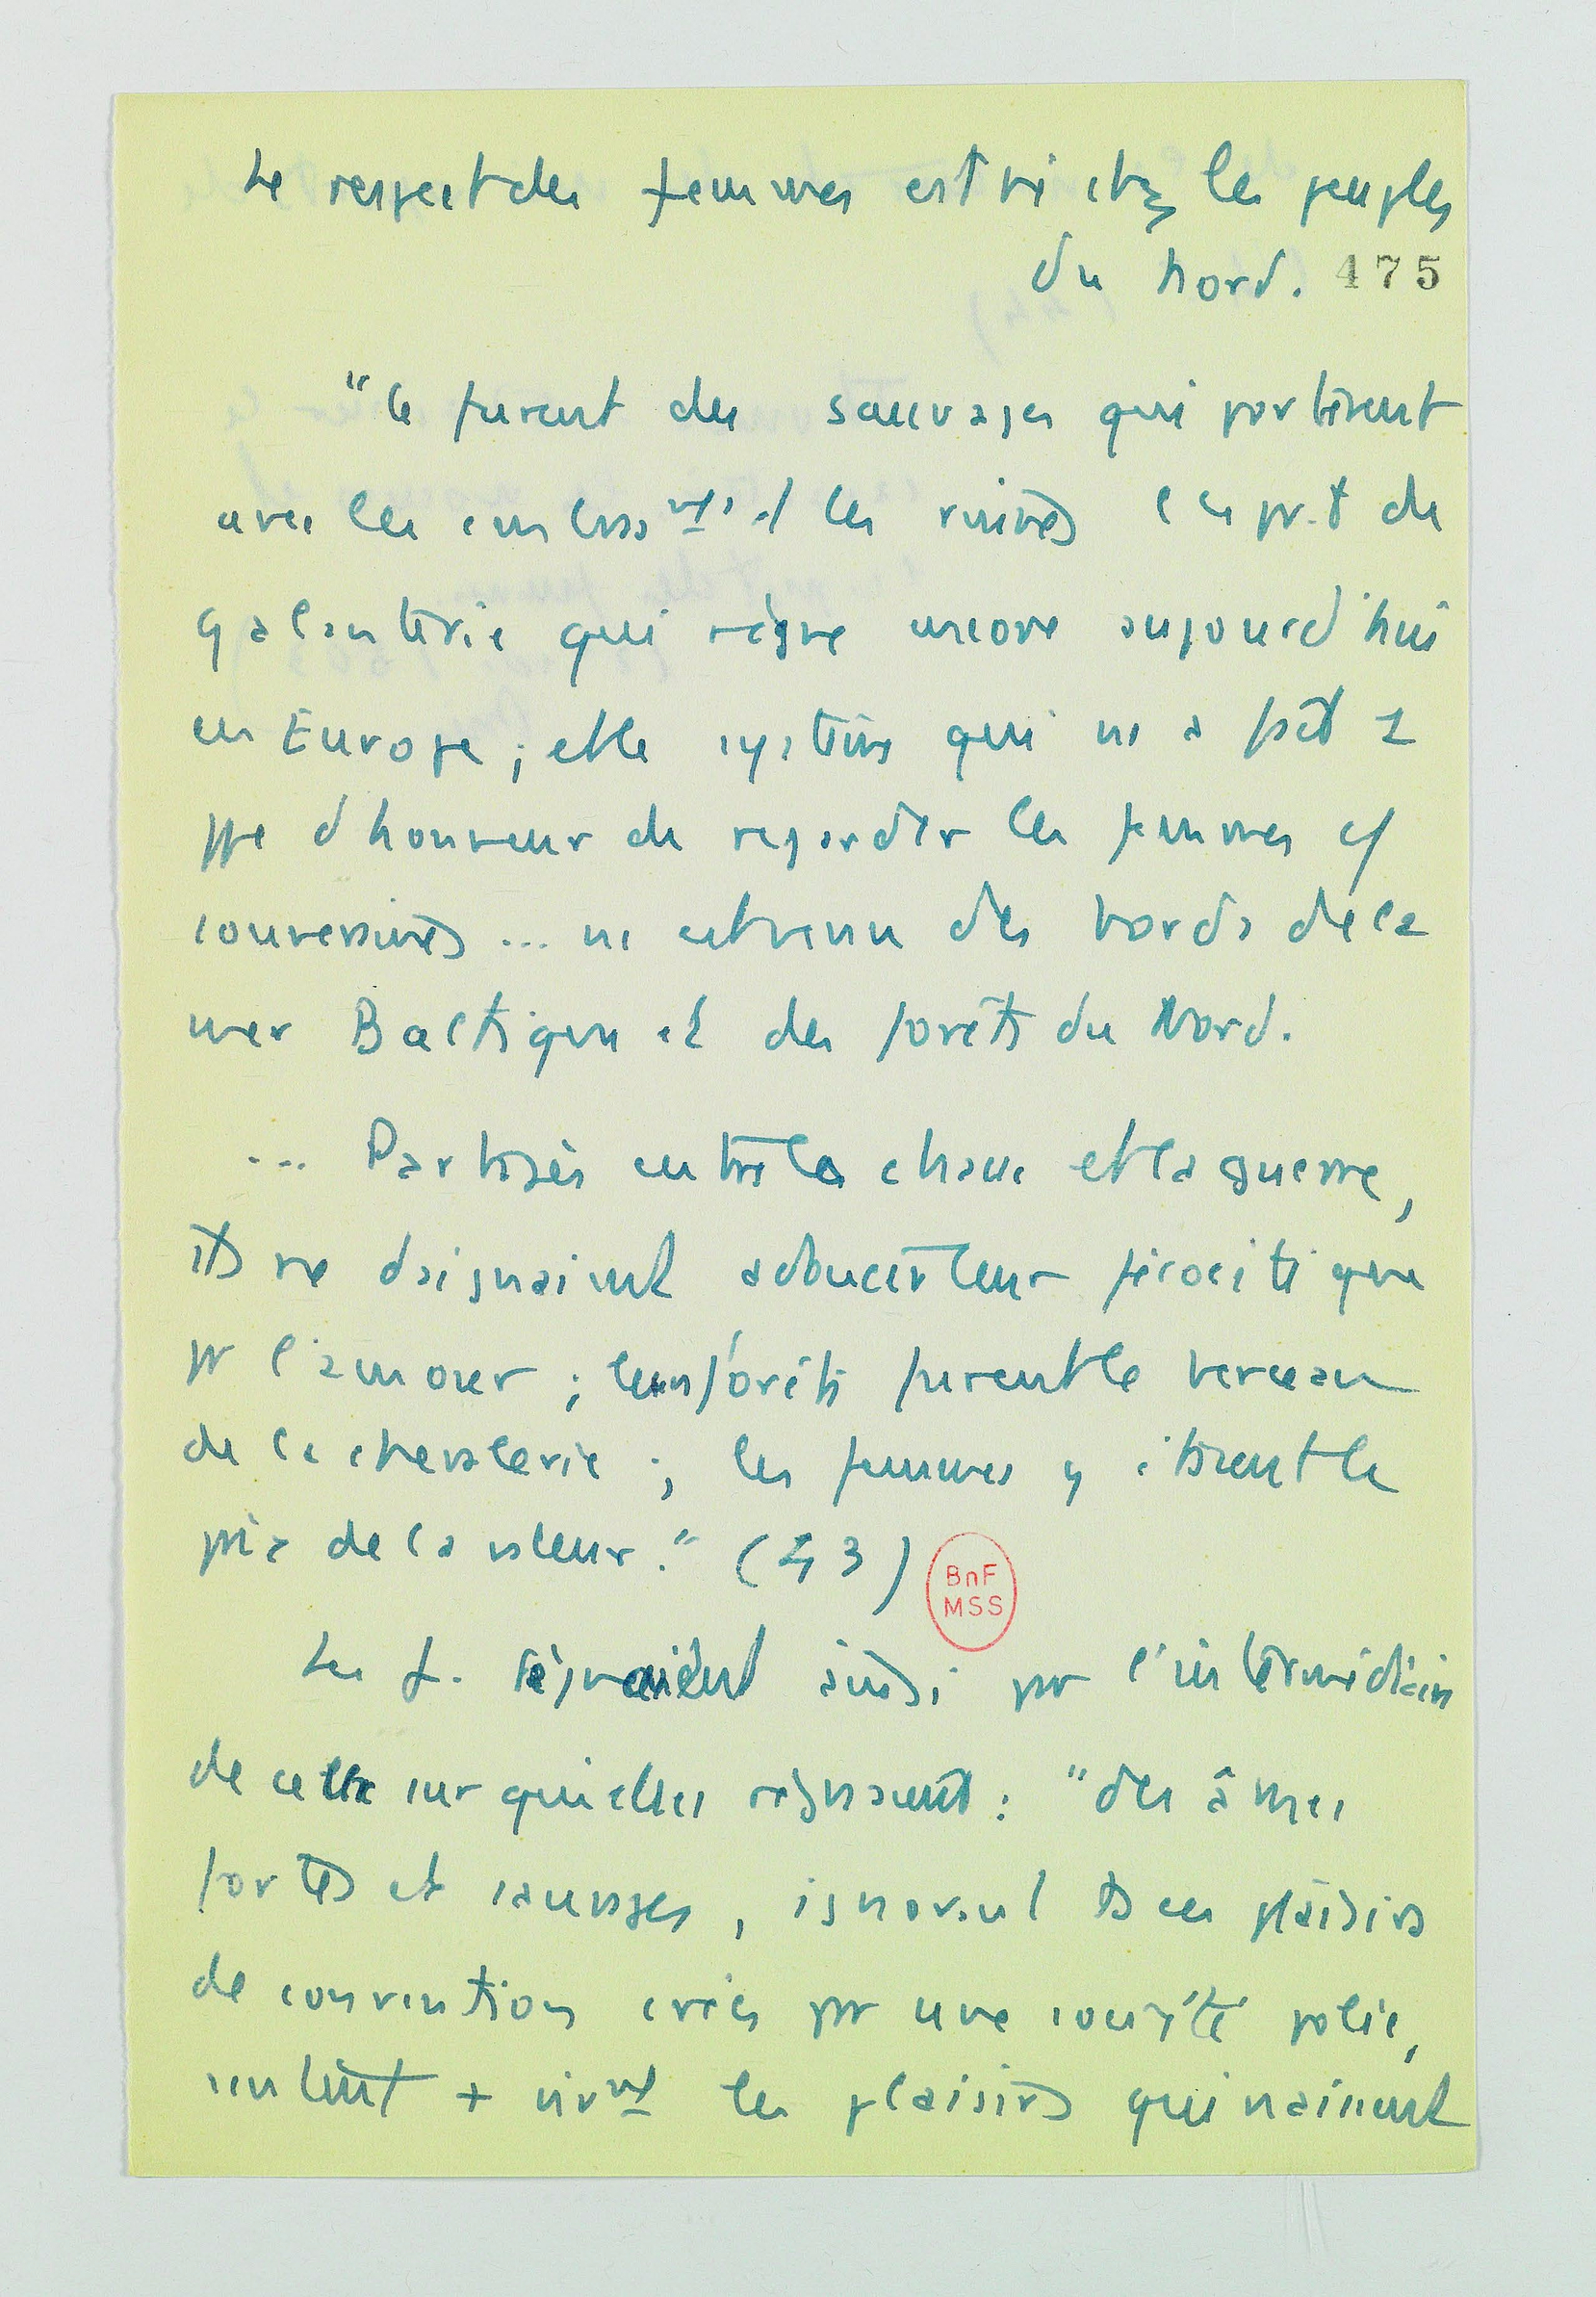 Le respect des femmes est né chez les peuples
du Nord. 475
"Ce furent des sauvages qui portèrent
avec les embrasmts et les ruines cet esprit de
galanterie qui règne encore aujourd'hui
en Europe ; et le système qui ns a fait 1
ppe d'honneur de regarder les femmes c/
souveraines ... ns est venu des bords de la
mer Baltique et des forêts du Nord.
... Partagés entre la chasse et la guerre,
ils ne daignaient adoucir leur férocité que
pr l'amour ; leurs forêts furent le berceau
de la chevalerie ; les femmes y étaient le
prix de la valeur." (43)
BnF
MSS
Les f. régnaient ainsi pr l'intermédiaire
de ceux sur qui elles régnaient : "des âmes
fortes et sauvages, ignorant ts ces plaisirs
de convention créés pr une société polie,
sentent + vivmt les plaisirs qui naissent